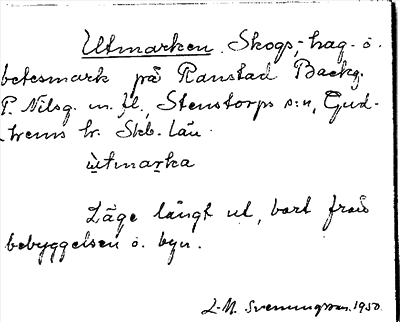 Utmarken. Skogs-, hag- o.
betesmark på Ranstad Backg.
P. Nilsg. m. fl., Stenstorps s:n, Gud-
hems hr. Skb. län.
ùtmarka
Läge långt ut, bort från
bebyggelsen o. byn.
L-M. Svenungsson. 1950.